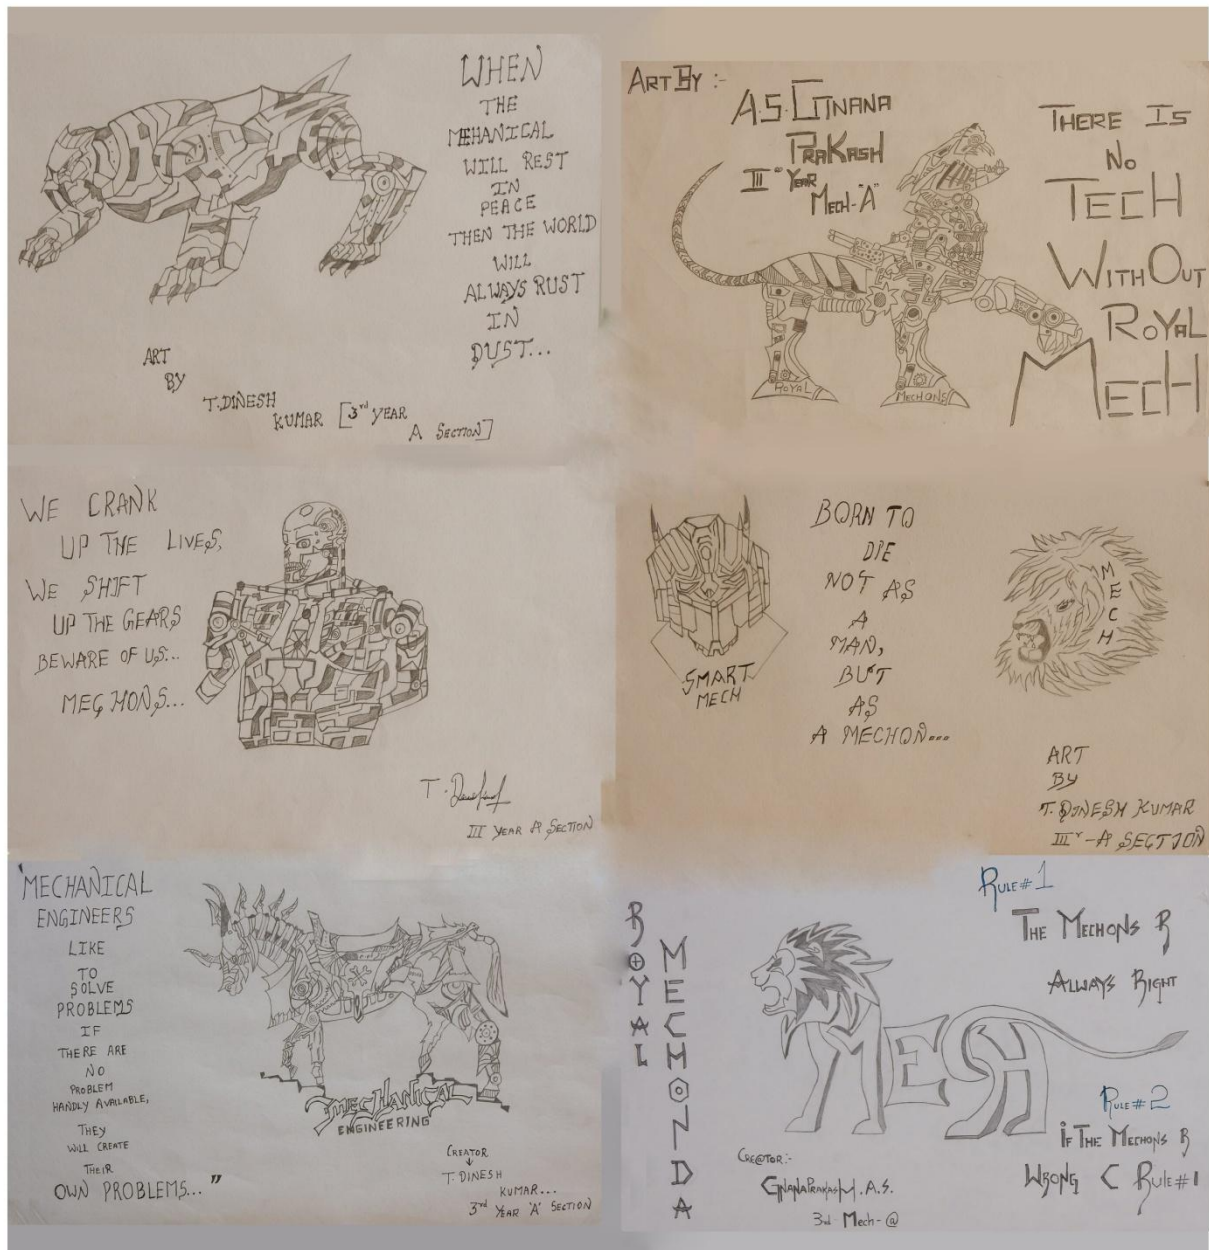 WHEN
THE
MEHANICAL
WILL REST
IN
PEACE
THEN THE WORLD
WILL
ALWAYS RUST
IN
DUST...
ART
BY
T.DINESH
KUMAR [3rd YEAR
A SECTION]
ART BY :-
A.S.GNANA
PRAKASH
III rd YEAR
MECH-"A"
THERE IS
NO
TECH
WITHOUT
ROYAL
MECH
ROYAL
MECHONS
WE CRANK
UP THE LIVES,
WE SHIFT
UP THE GEARS
BEWARE OF US...
MECHONS...
T.
III YEAR A SECTION
SMART
MECH
BORN TO
DIE
NOT AS
A
MAN,
BUT
AS
A MECHON...
MECH
ART
BY
T.DINESH KUMAR
III r -A SECTION
"MECHANICAL
ENGINEERS
LIKE
TO
SOLVE
PROBLEMS
IF
THERE ARE
NO
PROBLEM
HANDLY AVAILABLE,
THEY
WILL CREATE
THEIR
OWN PROBLEMS..."
MECHANICAL
ENGINEERING
CREATOR
T.DINESH
KUMAR...
3rd YEAR 'A' SECTION
ROYAL
MECHONDA
RULE#1
THE MECHONS R
ALWAYS RIGHT
MECH
RULE#2
IF THE MECHONS R
WRONG C RULE#1
CRE@TOR:-
GNANAPRAKASH.A.S.
3rd Mech-@